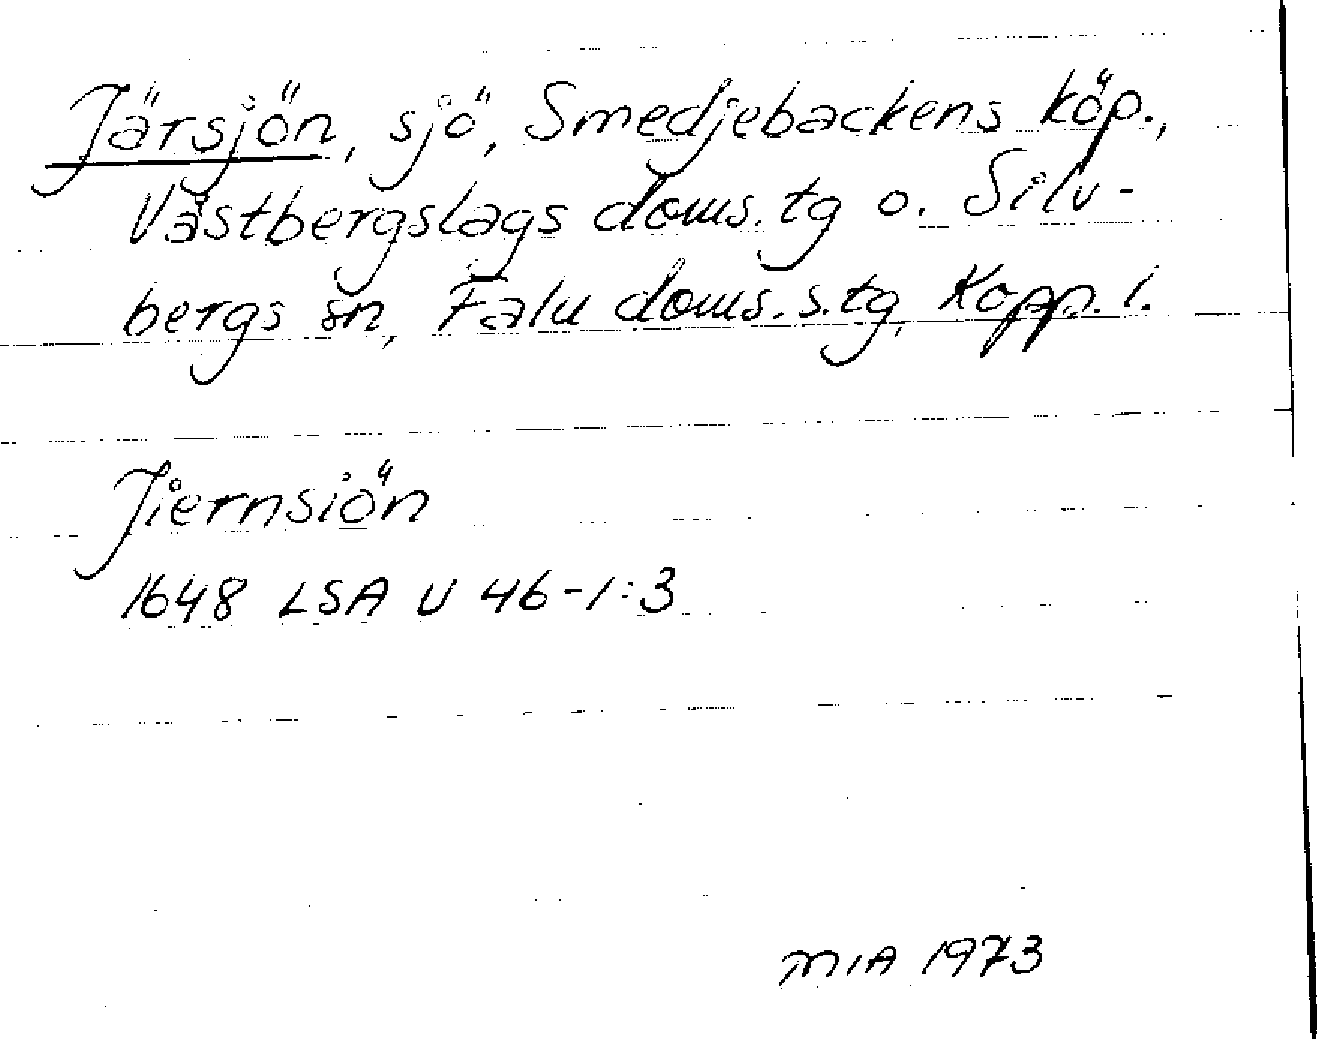 Järsjön, sjö, Smedjebackens köp.,
Västbergslags doms. tg o. Silv-
bergs sn, Falu doms. s. tg, Kopp. l.
Jiernsiön
1648 LSA U 46-1:3
MIA 1973